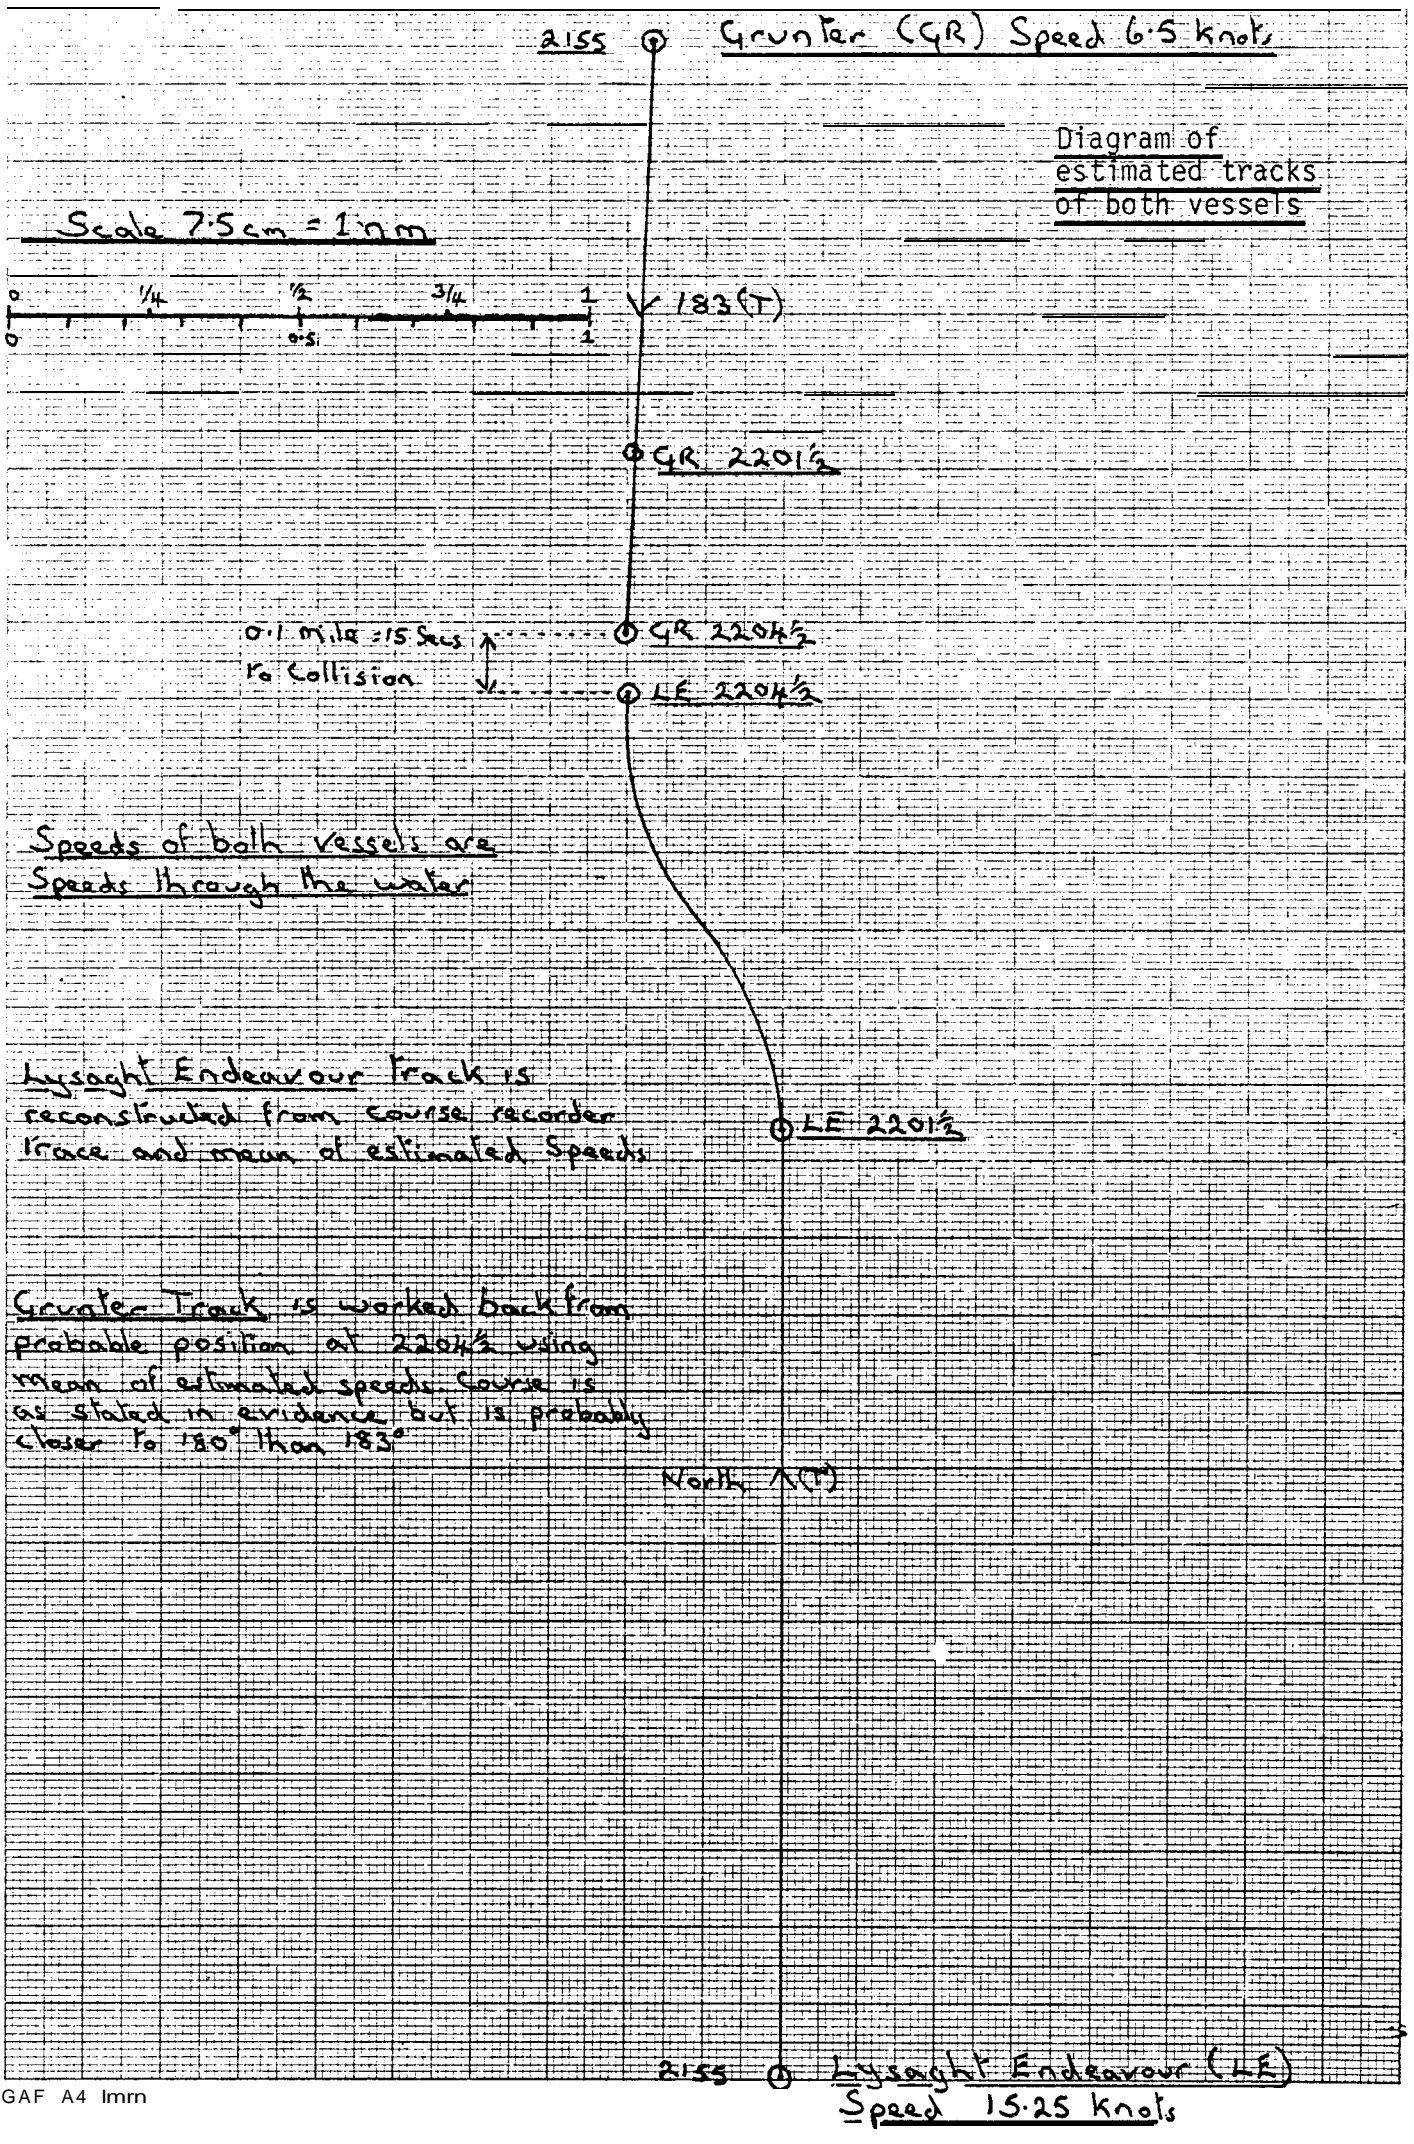 2155 Grunter (GR) Speed 6.5 Knots
Diagram of
estimated tracks
of both vessels
Scale 7.5cm = 1nm
0 1/4 1/2 3/4 1
0 0.5 1
183 (T)
GR 2201½
0.1 mile = 15 Secs
To Collision
GR 2204½
LE 2204½
Speeds of both vessels are
Speeds through the water
Lysaght Endeavour Track is
reconstructed from course recorder
Trace and mean of estimated Speeds
LE 2201½
Grunter Track is worked back from
probable position at 2204½ using
mean of estimated speeds. Course is
as stated in evidence but is probably
closer to 180° than 183°
North (T)
2155 Lysaght Endeavour (LE)
Speed 15.25 Knots
GAF A4 Imrn